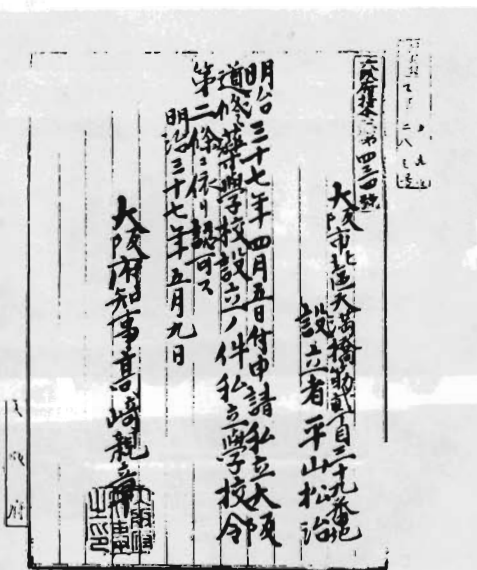 大阪府指令第四三四號
大阪市北區天満橋筋貳丁目三十九番地
設立者 平山松治
明治三十七年四月五日付申請私立大阪
道修薬學校設立ノ件私立學校令
第二條ニ依リ認可ス
明治三十七年五月九日
大阪府知事髙崎親章
大阪府